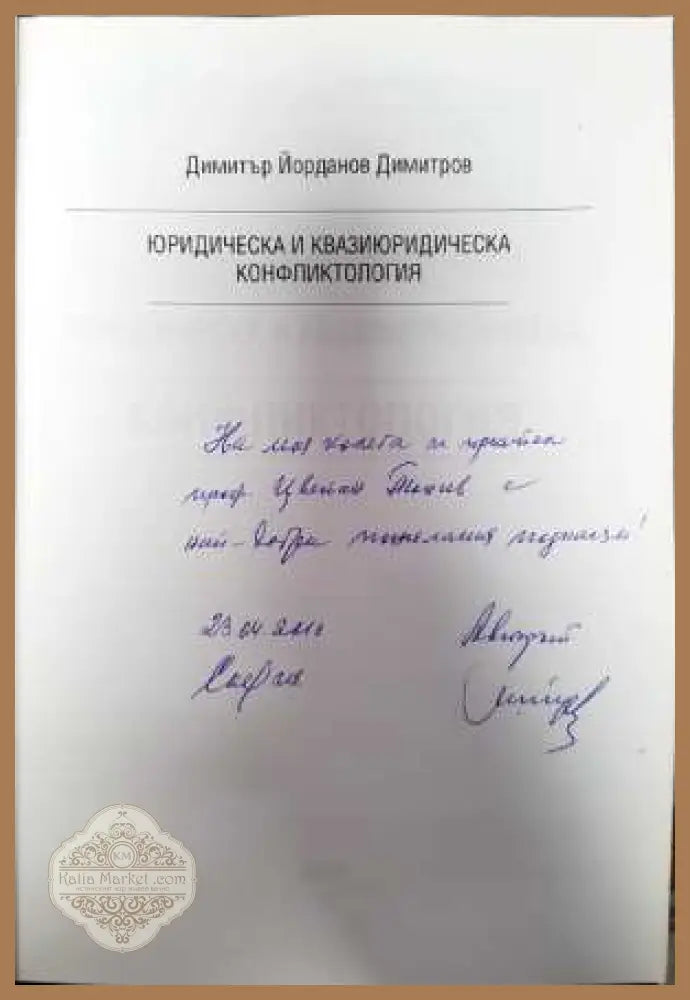 Димитър Йорданов Димитров
ЮРИДИЧЕСКА И КВАЗИЮРИДИЧЕСКА
КОНФЛИКТОЛОГИЯ
На моя колега и приятел
проф. Цветан с
най-добри пожелания подписам!
23.04.2010
София
KM
Kalia Market.com